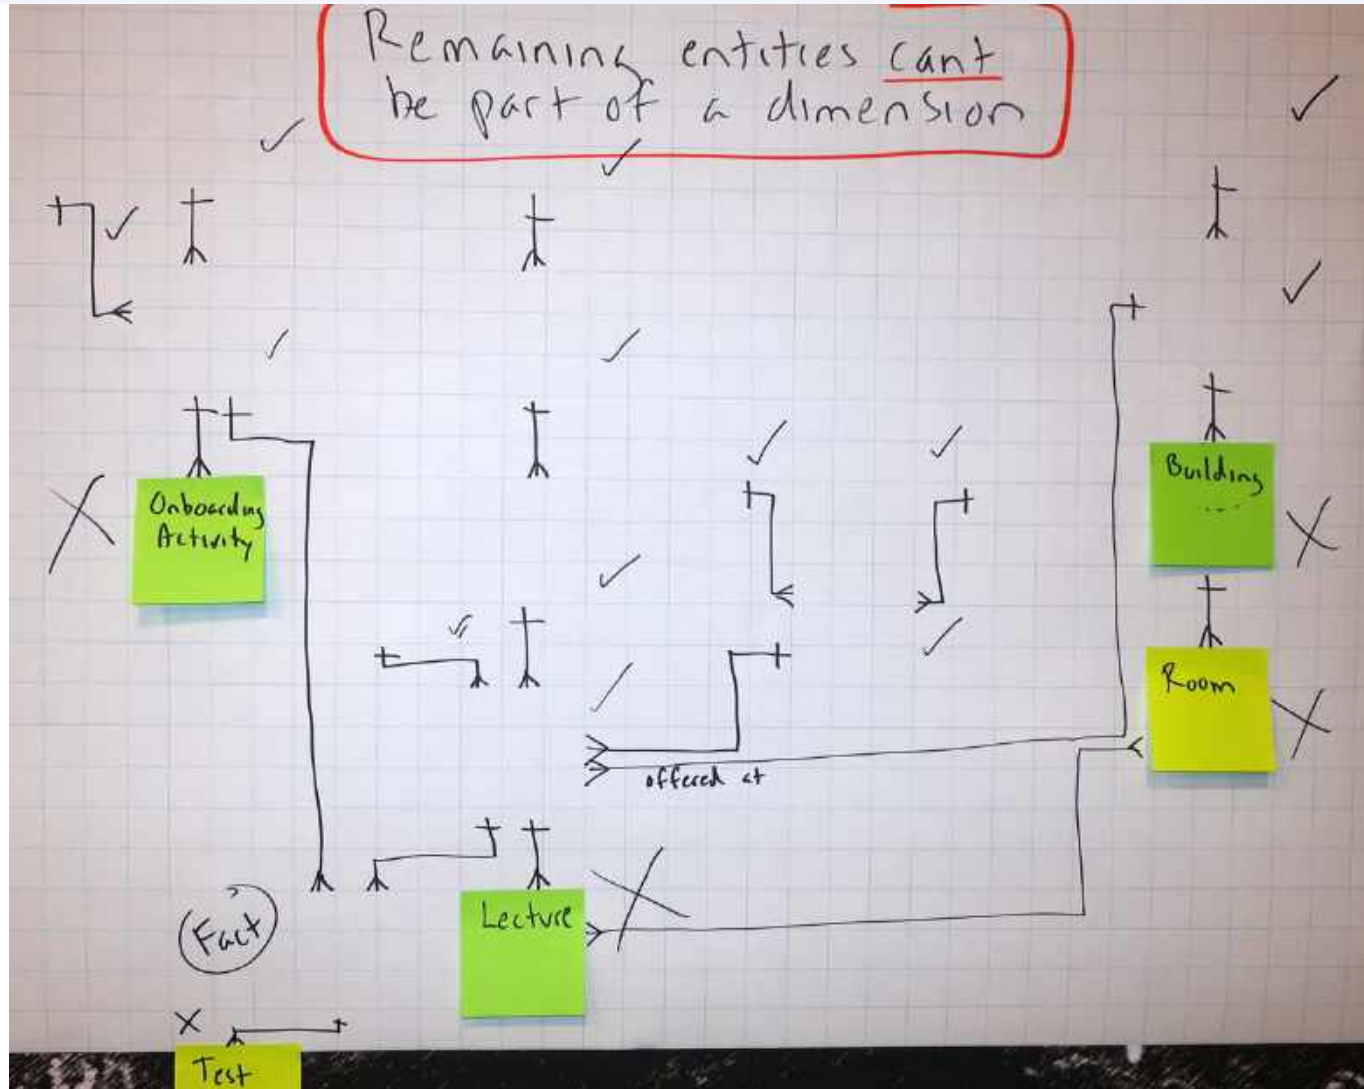 Remaining entities cant
be part of a dimension
Onboarding
Activity
Building
...
Room
offered at
Lecture
Fact
Test